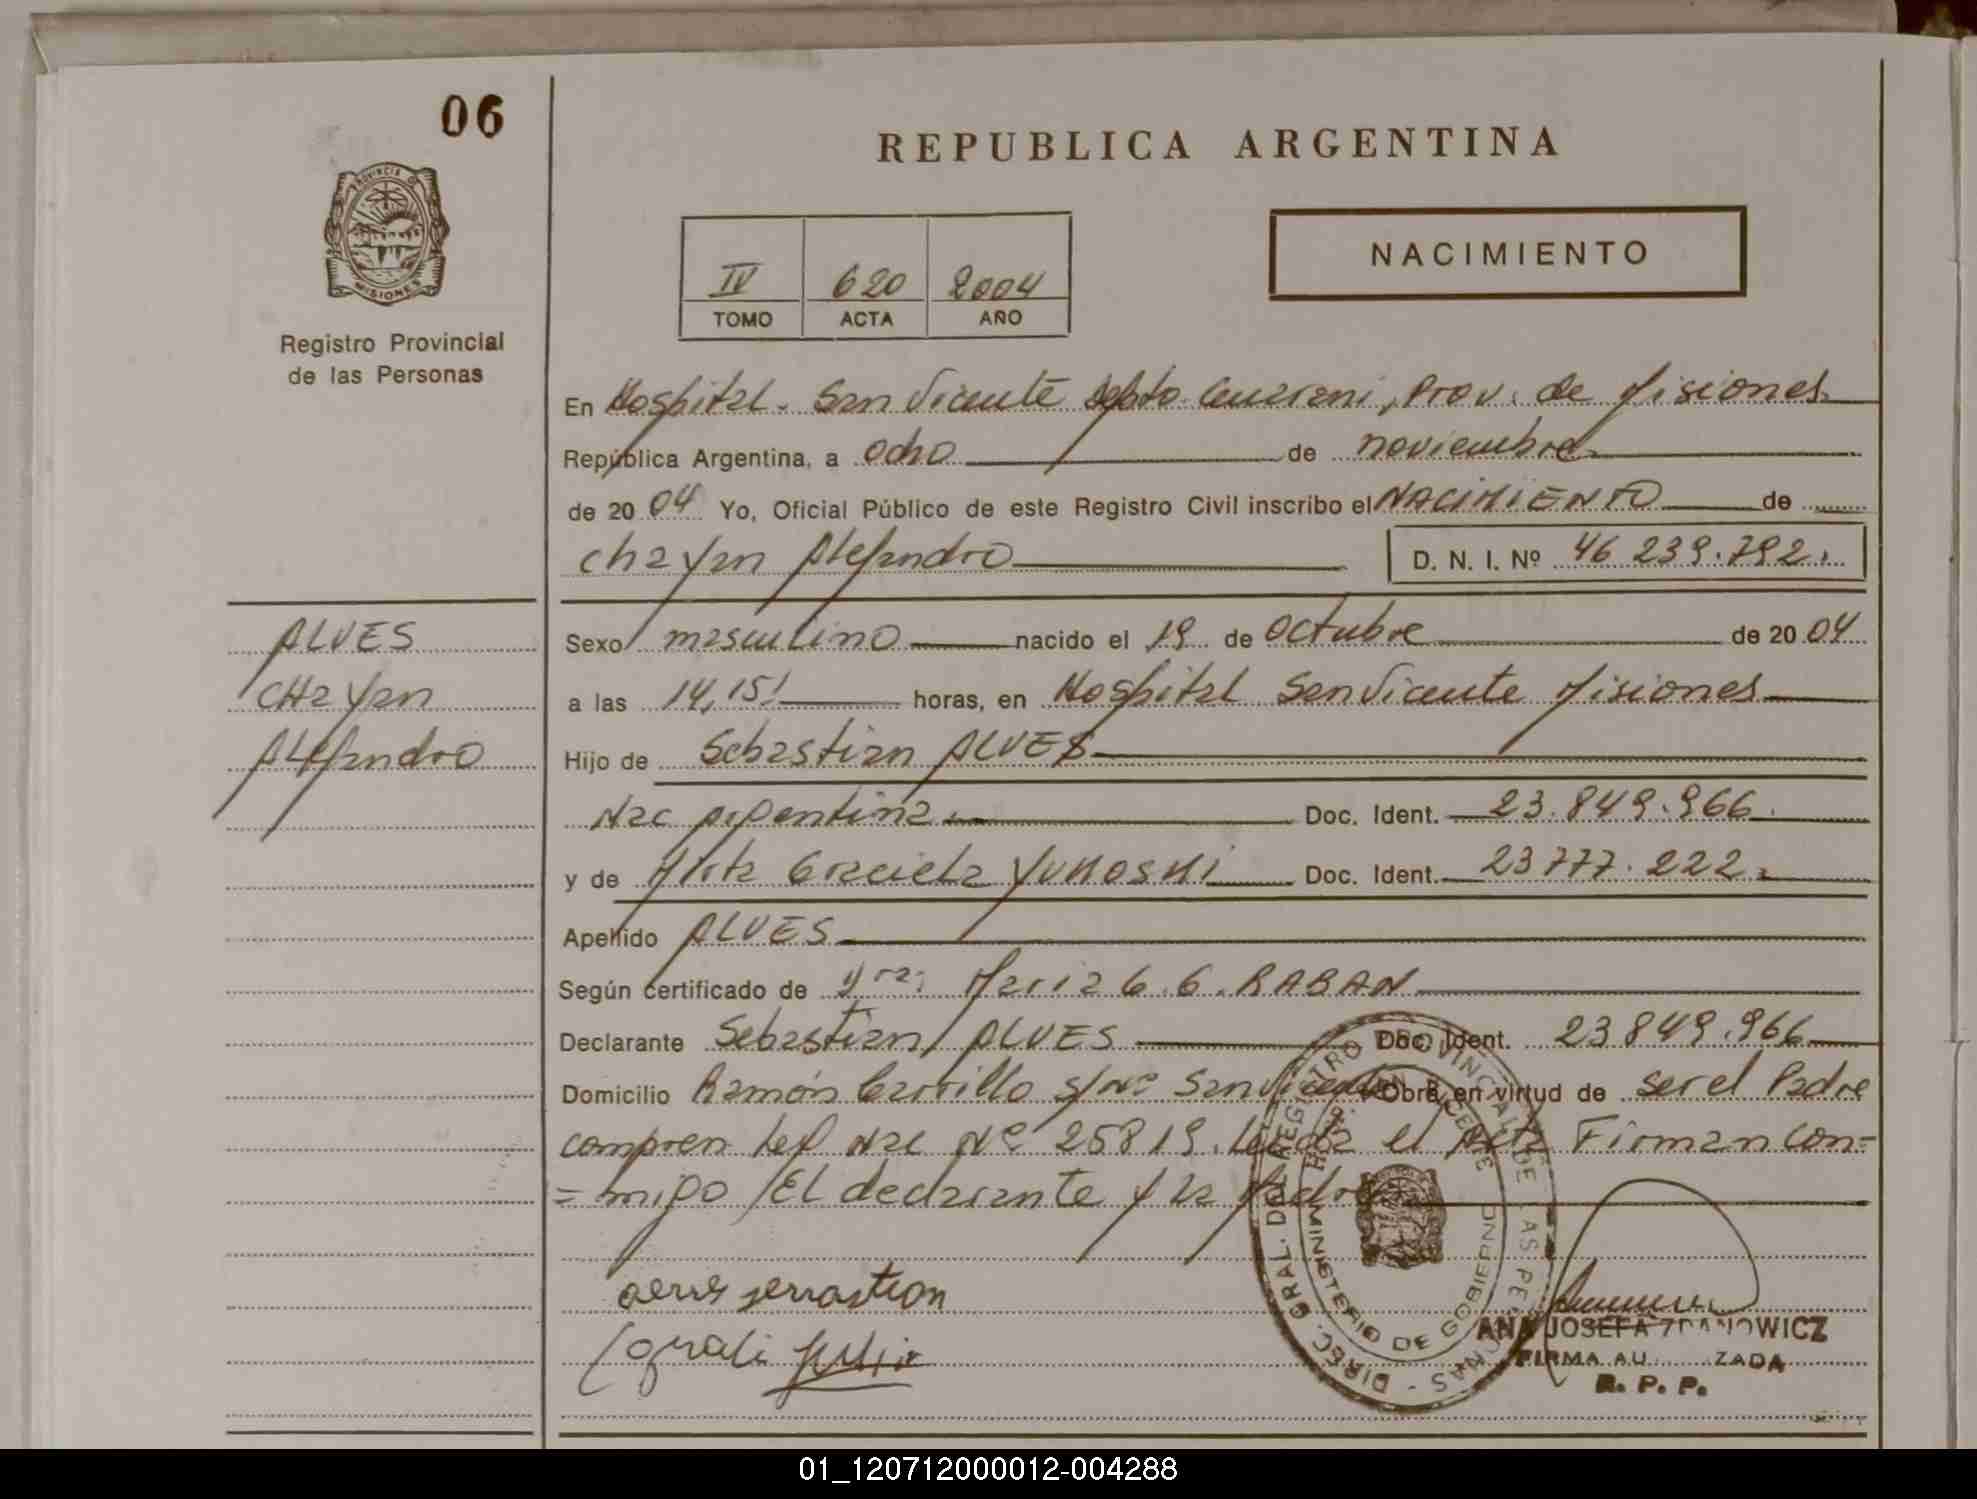 06
REPUBLICA ARGENTINA
PROVINCIA DE
MISIONES
Registro Provincial
de las Personas
NACIMIENTO
IV 620 2004
TOMO ACTA AÑO
En Hospital. San Vicente Dpto. Guarani, Prov. de Misiones
República Argentina, a ocho de noviembre
de 2004 Yo, Oficial Público de este Registro Civil inscribo el NACIMIENTO de
Chayan Alejandro D. N. I. Nº 46 239.792.
ALVES
CHayan
Alejandro
Sexo masculino nacido el 19 de Octubre de 2004
a las 14,15! horas, en Hospital San Vicente Misiones
Hijo de Sebastian ALVES
Nac Argentina Doc. Ident. 23.849.966.
y de Mirta Graciela YUNOSKI Doc. Ident. 23 777.222.
Apellido ALVES
Según certificado de Dra. Maria G. G. RABAN
Declarante Sebastian ALVES Doc. Ident. 23 849.966
Domicilio Ramón Carrillo s/nº San Vicente Obra en virtud de ser el Padre
compren Nac Nº 25819. el Acta Firman con=
=migo El declarante y la Madre
sebastion
DIREC. GRAL. DEL REGISTRO PROVINCIAL DE LAS PERSONAS
MINISTERIO DE GOBIERNO
ANA JOSEFA ZDANOWICZ
FIRMA AU ZADA
R. P. P.
01_120712000012-004288